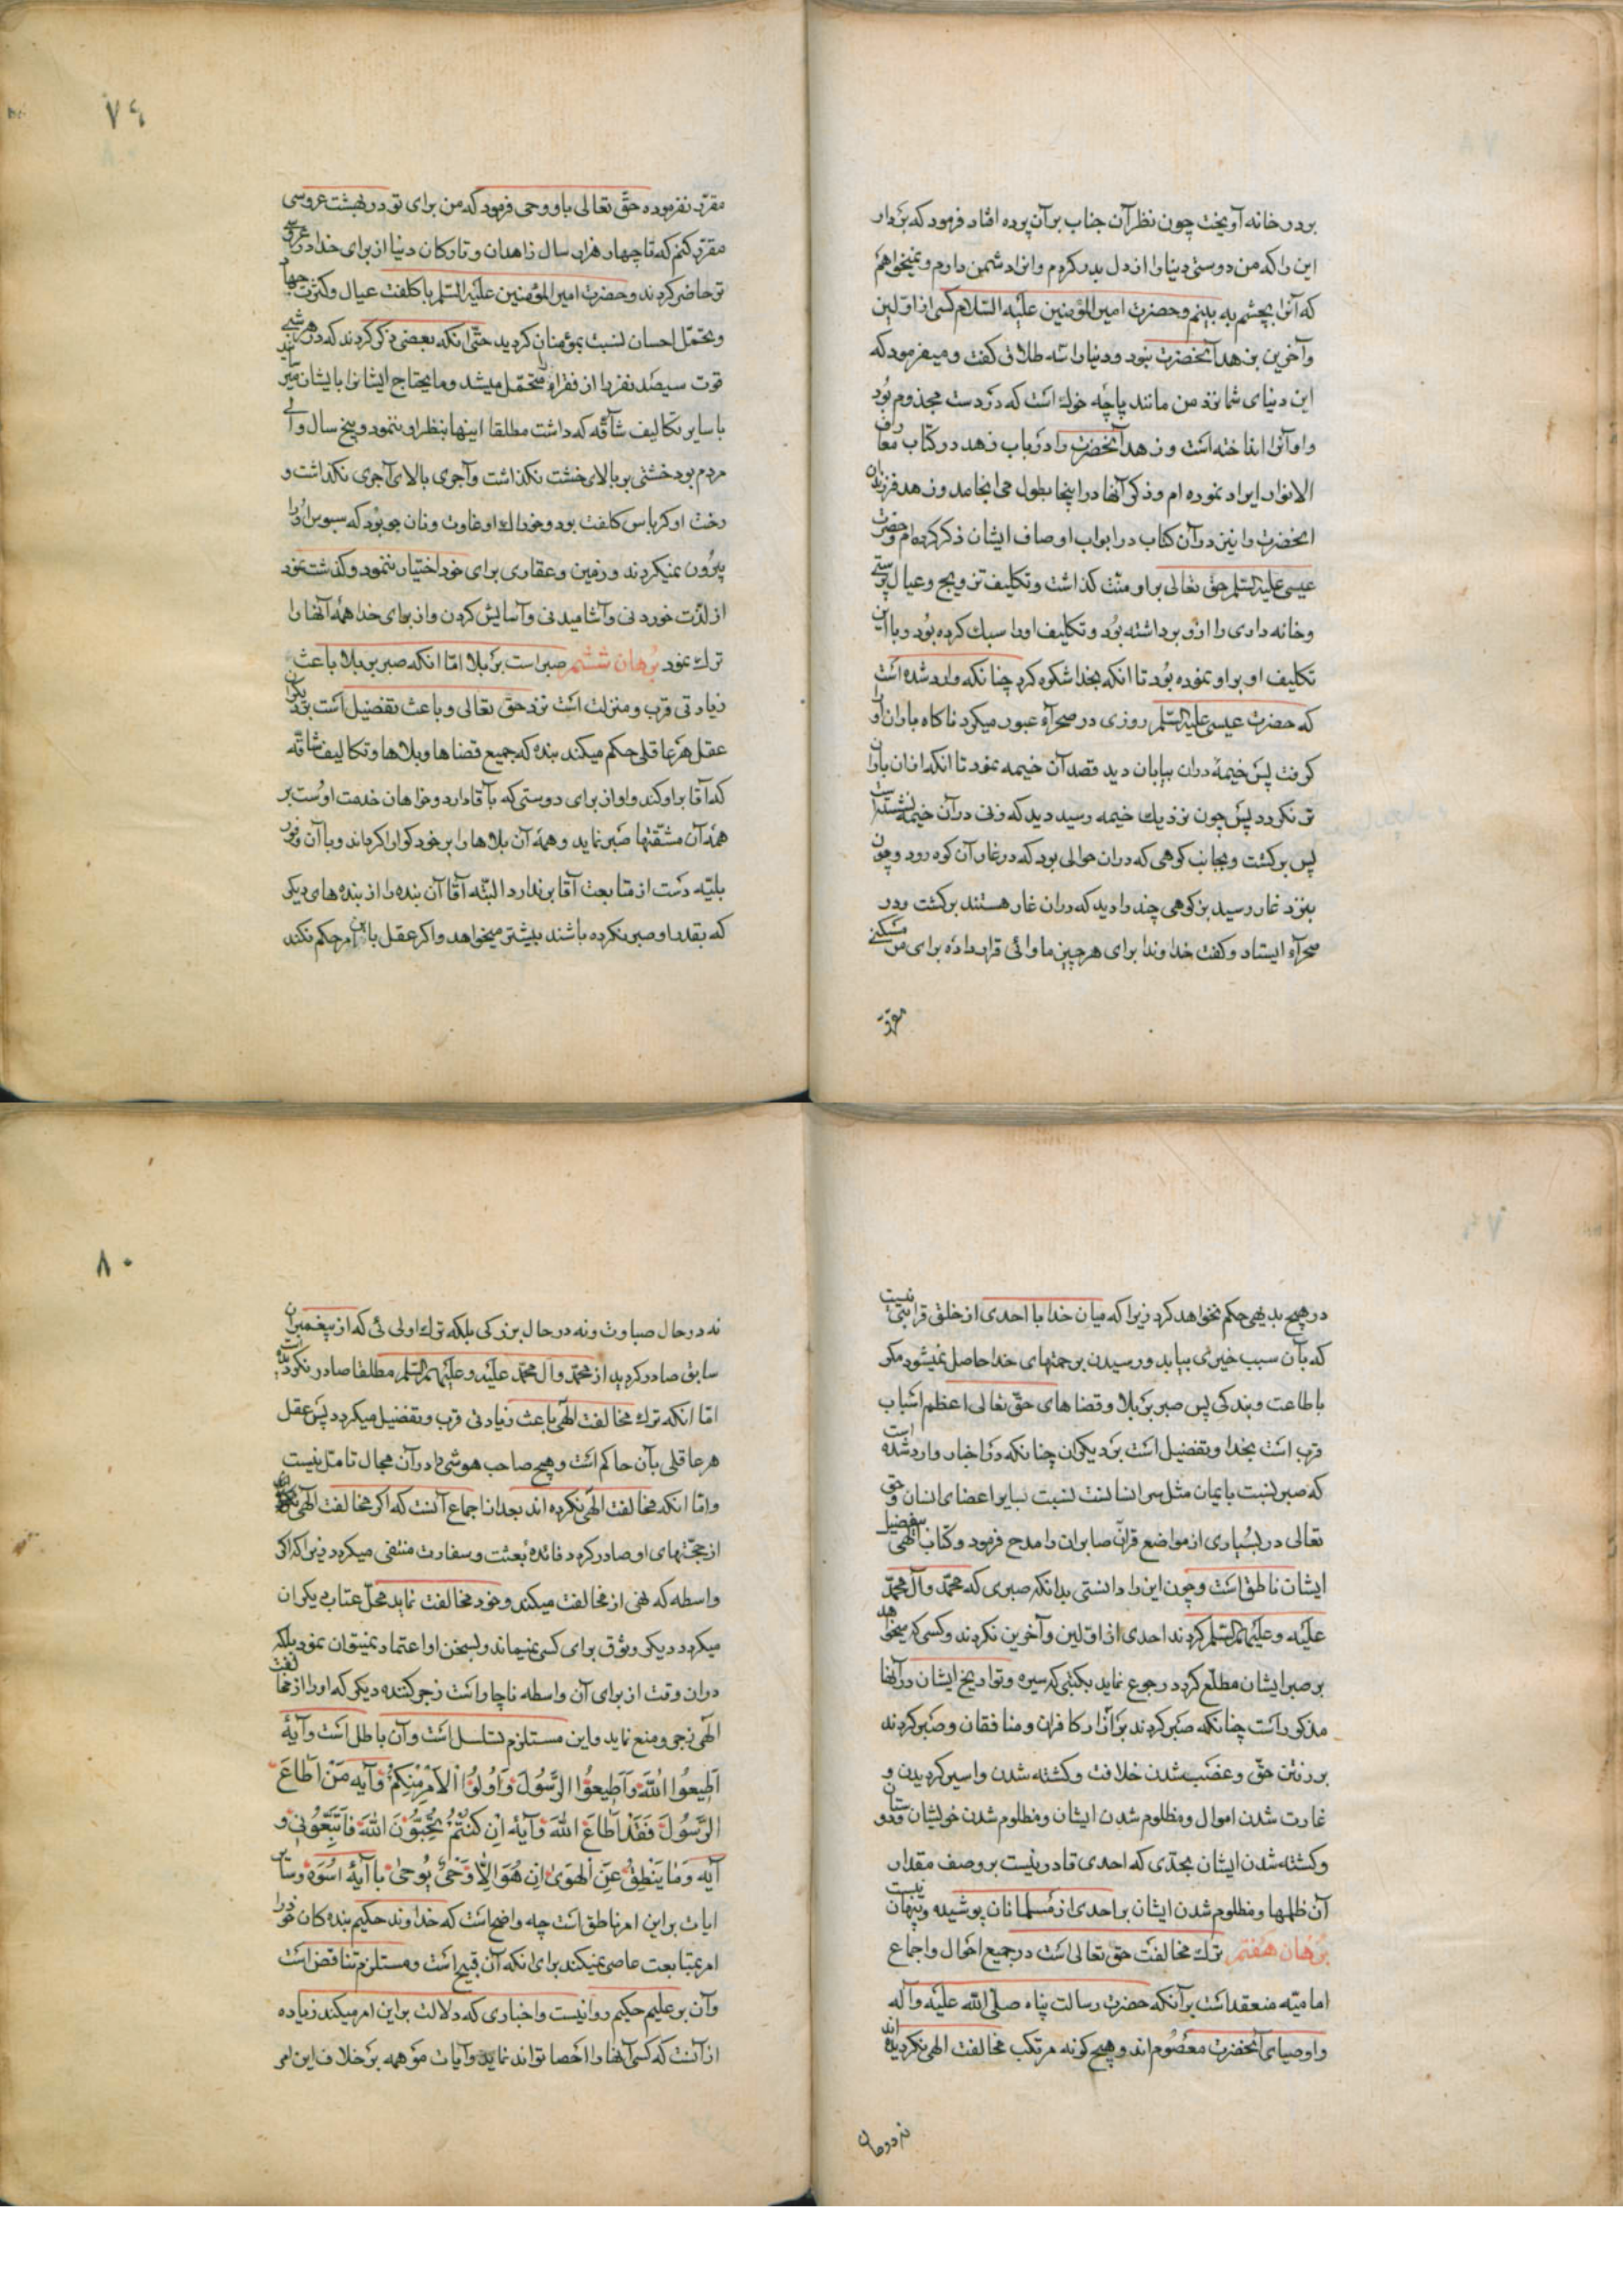 بر در خانه آویخت چون نظر آن جناب بر آن پرده افتاد فرمود که بردار
این را که من دوستی دنیا را از دل بدر کردم و او را دشمن دارم و نمیخواهم
که آنرا بچشم به بینم و حضرت امیر المؤمنین علیه السلام کسی از اولین
و آخرین بزهد آنحضرت نبود و دنیا را سه طلاق گفت و میفرمود که
این دنیای شما نزد من مانند پاچه خوک است که در دست مجذوم بود
و او آنرا انداخته است و زهد آنحضرت را در باب زهد در کتاب معارف
الانوار ایراد نموده ام و ذکر آنها در اینجا بطول می انجامد و زهد فرزندان
انحضرت را نیز در آن کتاب در ابواب اوصاف ایشان ذکر کرده ام و حضرت
عیسی علیه السلم حق تعالی بر او منت گذاشت و تکلیف تزویج و عیال پرستی
و خانه داری را از او برداشته بود و تکلیف او را سبک کرده بود و با این
تکلیف او بر او نموده بود تا انکه بخدا شکوه کرد چنانکه وارد شده است
که حضرت عیسی علیه السلم روزی در صحرآء عبور میکرد ناکاه باران او را
گرفت پس خیمۀ دران بیابان دید قصد آن خیمه نمود تا انکه از ان باران
تر نگردد پس چون نزدیک خیمه رسید دید که زنی در آن خیمه نشسته است
پس برگشت و بجانب کوهی که دران حوالی بود که در غار آن کوه رود و چون
بنزد غار رسید بز کوهی چند را دید که دران غار هستند برگشت و در
صحرآء ایستاد و گفت خداوندا برای هر چیز ماوائی قرار داده برای من مسکنی
مقرر
٧٩
مقرر نفرموده حق تعالی باو وحی فرمود که من برای تو در بهشت عروسی
مقرر کنم که تا چهار هزار سال زاهدان و تارکان دنیا از برای خدا در عروسی
تو حاضر گردند و حضرت امیر المؤمنین علیه السلم با کلفت عیال و کثرت جهاد
و تحمل احسان نسبت بمؤمنان گردید حتی انکه بعضی ذکر کردند که در هر شبی
قوت سیصد نفر را از فقراء متحمل میشد و مایحتاج ایشانرا بایشان میرسانید
با سایر تکالیف شاقه که داشت مطلقا اینها بنظر او ننمود و پنج سال والی
مردم بود خشتی بر بالای خشت نگذاشت و آجری بالای آجری نگذاشت و
رخت او کرباس کلفت بود و خوراک او غاوت و نان جو بود که سبوس او را
بیرون نمیکردند و زمین و عقاری برای خود اختیار ننمود و گذشت نمود
از لذت خوردنی و آشامیدنی و آسایش کردن و از برای خدا همه آنها را
ترک نمود برهان ششم صبر است بر بلا اما انکه صبر بر بلا باعث
زیادتی قرب و منزلت است نزد حق تعالی و باعث تفضیل است بر دیکران
عقل هر عاقلی حکم میکند بنده که جمیع قضاها و بلاها و تکالیف شاقه
که آقا بر او کند و او از برای دوستی که بآقا دارد و خواهان خدمت اوست بر
همه آن مشقتها صبر نماید و همه آن بلاها را بر خود گوارا گرداند و با آن وفور
بلیه دست از متابعت آقا بر ندارد البته آقا آن بنده را از بنده های دیکر
که بقدر او صبر نکرده باشند بیشتر میخواهد و اگر عقل باین امر حکم نکند
در هیچ بدیهی حکم نخواهد کرد زیرا که میان خدا با احدی از خلق قرابتی نیست
که بآن سبب خیری بیابد و رسیدن برحمتهای خدا حاصل نمیشود مگر
باطاعت و بندگی پس صبر بر بلا و قضاهای حق تعالی اعظم اسباب
قرب است بخدا و تفضیل است بر دیگران چنانکه در اخبار وارد شده است
که صبر نسبت بایمان مثل سر انسانست نسبت بسایر اعضای انسان و حق
تعالی در بسیاری از مواضع قرآن صابران را مدح فرمود و کتاب الهی بتفضیل
ایشان ناطق است و چون این را دانستی بدانکه صبری که محمد و آل محمد
علیه و علیهم السلم کردند احدی از اولین و آخرین نکردند و کسی که میخواهد
بر صبر ایشان مطلع گردد رجوع نماید بکتبی که سیره و تواریخ ایشان در آنها
مذکور است چنانکه صبر کردند بر آزار کافران و منافقان و صبر کردند
بر رفتن حق و غضب شدن خلافت و کشته شدن و اسیر گردیدن و
غارت شدن اموال و مظلوم شدن ایشان و مظلوم شدن خویشان و دوستان
و کشته شدن ایشان بحدی که احدی قادر نیست بر وصف مقدار
آن ظلمها و مظلوم شدن ایشان بر احدی از مسلمانان پوشیده و پنهان نیست
برهان هفتم ترک مخالفت حق تعالی است در جمیع احوال و اجماع
امامیه منعقد است بر آنکه حضرت رسالت پناه صلی الله علیه و آله
و اوصیای آنحضرت معصوم اند و هیچ گونه مرتکب مخالفت الهی نگردیده اند
نه در حال
٨٠
نه در حال صباوت و نه در حال بزرگی بلکه ترک اولی ئی که از پیغمبران
سابق صادر گردید از محمد و آل محمد علیه و علیهم السلم مطلقا صادر نگردیده
اما انکه ترک مخالفت الهی باعث زیادتی قرب و تفضیل میگردد پس عقل
هر عاقلی بآن حاکم است و هیچ صاحب هوشی را در آن مجال تامل نیست
و اما انکه مخالفت الهی نکرده اند بعد از اجماع آنست که اگر مخالفت الهی
از حجتهای او صادر گردد فائدۀ بعثت و سفارت منتفی میگردد زیرا که اگر
واسطه که نهی از مخالفت میکند و خود مخالفت نماید محل عتاب دیگران
میگردد دیگر وثوق برای کسی نمیماند و بسخن او اعتماد نمیتوان نمود بلکه
دران وقت از برای آن واسطه ناچار است زجر کننده دیگر که او را از مخالفت
الهی زجر و منع نماید و این مستلزم تسلسل است و آن باطل است و آیۀ
اَطیعُوا اللهَ وَ اَطیعُوا الرَّسُولَ وَ اُولُوا الْاَمْرِ مِنْکُمْ وَ آیه مَنْ اَطاعَ
الرَّسُولَ فَقَدْ اَطاعَ اللهَ وَ آیۀ اِنْ کُنْتُمْ تُحِبُّونَ اللهَ فَاتَّبِعُونی و
آیه وَ ما یَنْطِقُ عَنِ الْهَوی اِنْ هُوَ اِلّا وَحْیٌ یُوحی با آیۀ اُسْوَه و سایر
ایات بر این امر ناطق است چه واضح است که خداوند حکیم بنده کان خود را
امر بمتابعت عاصی نمیکند برای انکه آن قبیح است و مستلزم تناقض است
و آن بر علیم حکیم روا نیست و اخباری که دلالت بر این امر میکند زیاده
از آنست که کسی آنها را احصا تواند نماید و آیات موهمه بر خلاف این امر